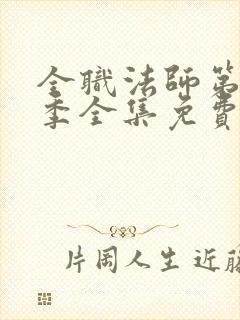 全職法師第
季全集免費
片岡人生 近藤